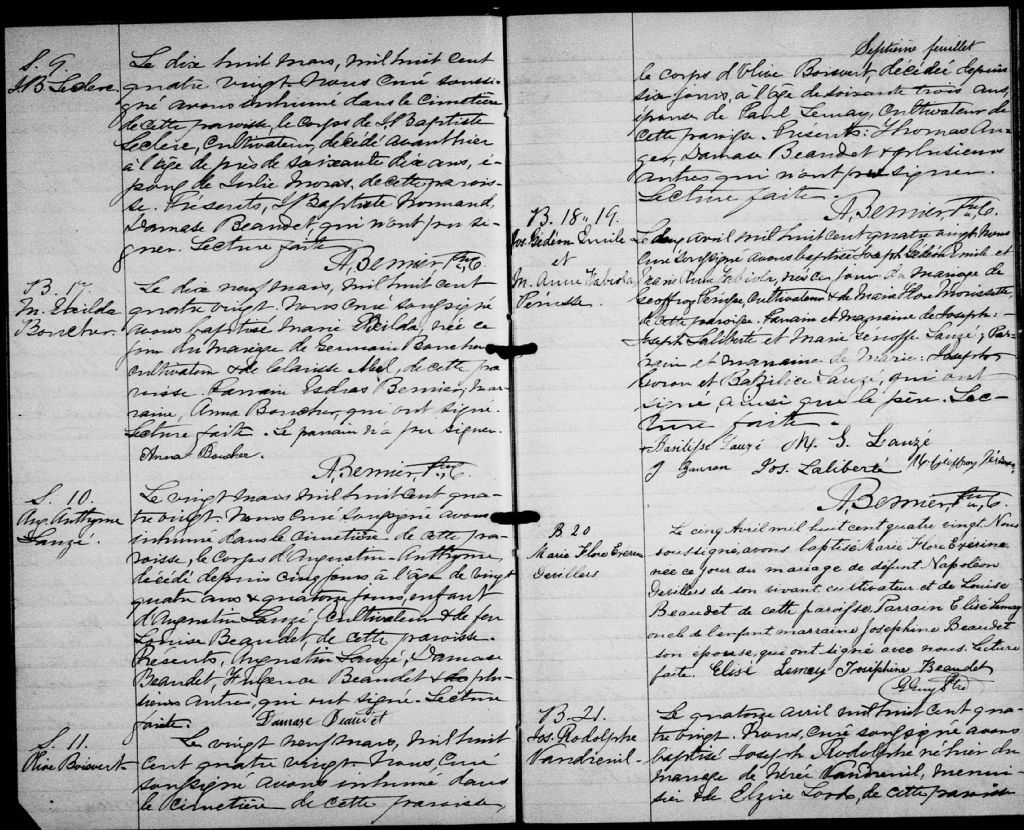 S. 9.
J. B. Leclerc
Le dix huit Mars, Mil huit cent
quatre vingt. Nous curé soussi-
gné avons inhumé dans le cimetière
de cette paroisse, le corps de J. Baptiste
Leclerc, cultivateur, décédé avant hier
à l'âge de près de soixante dix ans, é-
poux de Julie Moras, de cette parois-
se. Présents, J. Baptiste Normand,
Damase Beaudet, qui n'ont pu si-
gner. Lecture faite
A. Bernier, Ptre, C.
B. 17.
M. Exilda
Boucher.
Le dix neuf Mars, mil huit cent
quatre vingt. Nous curé soussigné
avons baptisé Marie Exilda, née ce
jour du mariage de Germain Boucher
cultivateur & de Clarisse Abel, de cette pa-
roisse. Parrain Esdras Bernier, mar-
raine, Anna Boucher, qui ont signé.
Lecture faite. Le parrain n'a pu signer.
Anna Boucher.
A. Bernier, Ptre, C.
S. 10.
Aug. Anthyme
Lauzé.
Le vingt Mars mil huit cent qua-
tre vingt. Nous curé soussigné avons
inhumé dans le cimetière de cette pa-
roisse, le corps d'Augustin Anthyme,
décédé depuis cinq jours à l'âge de vingt
quatre ans & quatorze jours, enfant
d'Augustin Lauzé, Cultivateur & de feu
Louise Beaudet, de cette paroisse.
Présents, Augustin Lauzé, Damase
Beaudet, Fulgence Beaudet & plu-
sieurs autres, qui ont signé. Lecture
faite. Damase Beaudet
S. 11.
Olive Boisvert
Le vingt neuf Mars, mil huit
cent quatre vingt. Nous curé
soussigné avons inhumé dans
le cimetière de cette paroisse,
Septième feuillet
le corps d'Olive Boisvert décédée depuis
six jours, à l'âge de soixante trois ans,
épouse de Paul Lemay, Cultivateur de
cette paroisse. Présents: Thomas Au-
ger, Damase Beaudet & plusieurs
autres qui n'ont pu signer.
Lecture faite
A. Bernier, Ptre, C.
B. 18 " 19.
Jos. Gédéon Emile
et
M. Anne Fabiola
Perusse
Le deux Avril mil huit cent quatre vingt. Nous
curé soussigné avons baptisé Joseph Gédéon Emile et
Marie Anne Fabiola, nés ce jour du mariage de
Geoffroy Perusse, Cultivateur & de Marie Flore Morissette,
de cette paroisse. Parrain et marraine de Joseph:
Joseph Laliberté et Marie Lauzé; Par-
rain et marraine de Marie: Joseph
et Bazilice Lauzé, qui ont
signé, ainsi que le père. Lec-
ture faite.
Basilisse Lauzé M. S. Lauzé
J Jos. Laliberté Geoffroy Pérusse
A. Bernier, Ptre, C.
B 20
Marie Flore Exérine
Devillers
Le cinq Avril mil huit cent quatre vingt. Nous
soussigné, avons baptisé Marie Flore Exérine
née ce jour du mariage de défunt Napoléon
Devillers de son vivant cultivateur et de Louise
Beaudet de cette paroisse. Parrain Elisé Lemay
oncle de l'enfant marraine Josephine Beaudet
son épouse, qui ont signé avec nous. Lecture
faite. Elisé Lemay Joséphine Beaudet
Ptre
B. 21.
Jos. Rodolphe
Vandreuil.
Le quatorze Avril mil huit cent qua-
tre vingt. Nous, curé soussigné avons
baptisé Joseph Rodolphe né hier du
mariage de Nérée Vandreuil, menui-
sier & de Elzire Lord, de cette paroisse